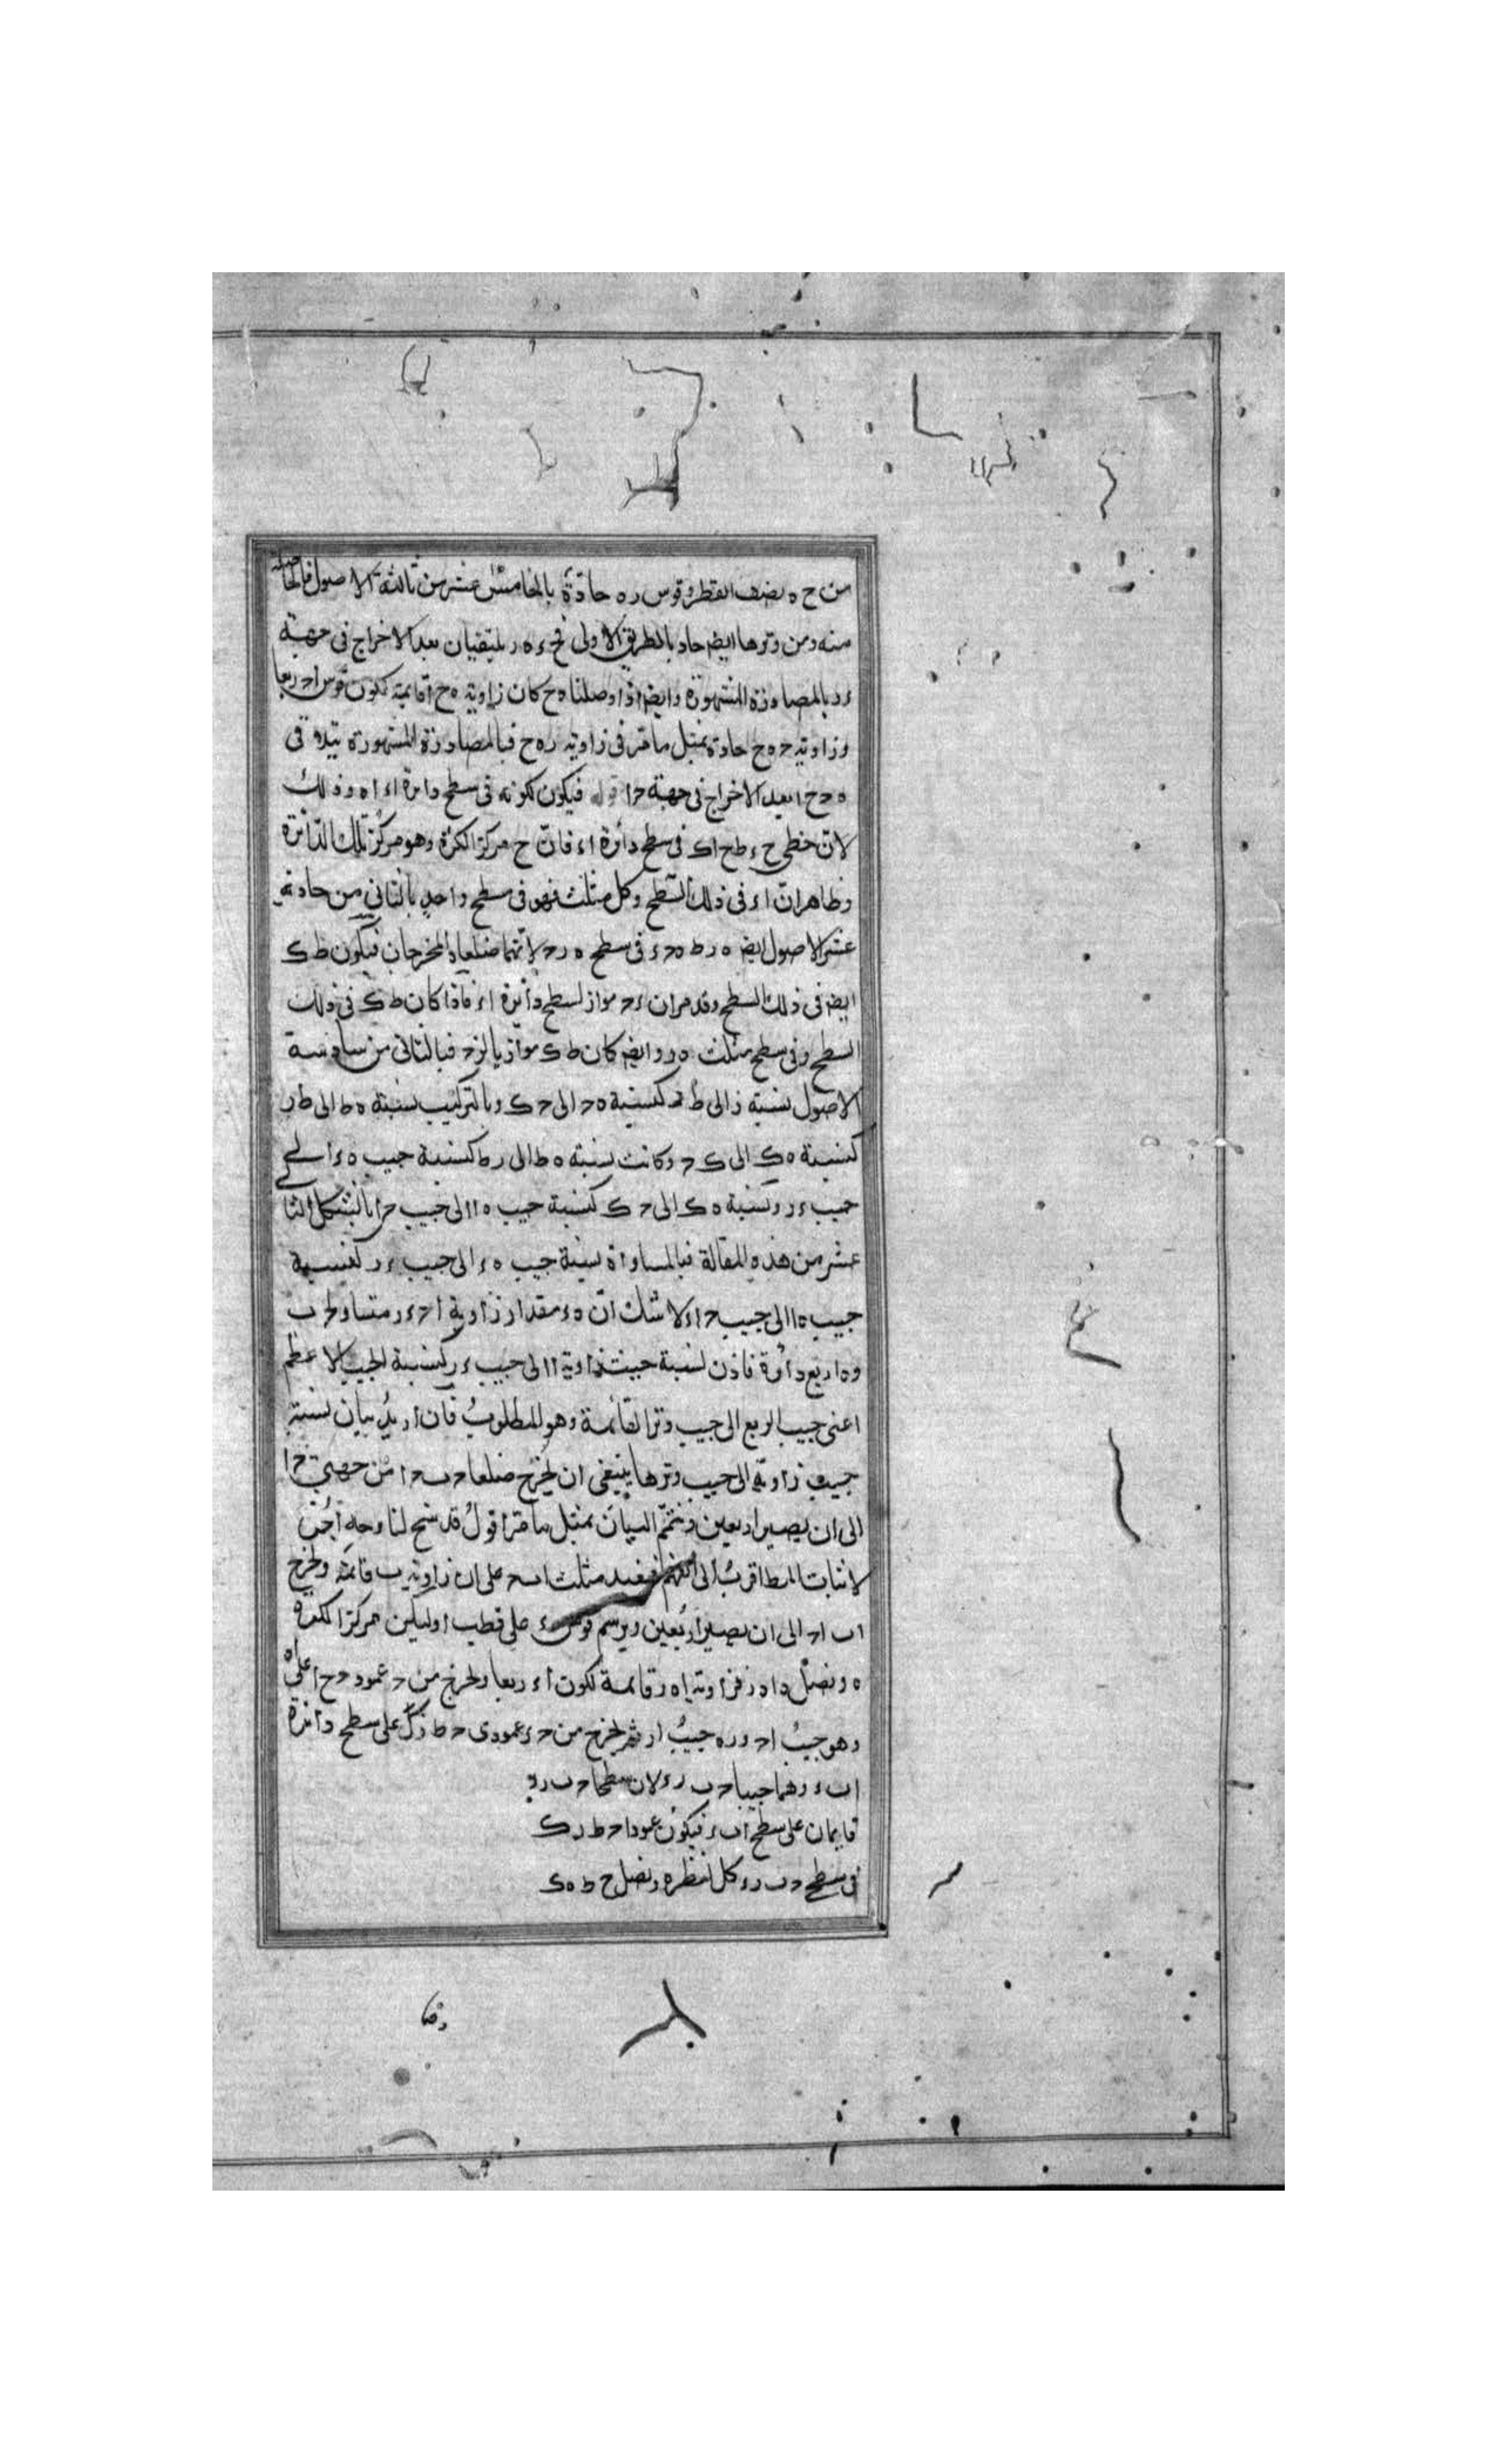 من ح ه نصف القطر وقوس ره حادة بالخامس عشر من ثالثة الاصول فالحاصلة
منه ومن وترها ايضا حاد بالطريق الاولى فح ء ه ر يلتقيان بعد الاخراج فى جهة
ء ر بالمصادرة المشهورة وايضا اذا وصلنا ه ح كان زاوية ه ح ا قايمة لكون قوس ا ه ربعا
وزاوية ح ه ح حادة بمثل ما مر فى زاوية ر ه ح فبالمصادرة المشهورة يتلاقى
ه ح ح ا بعد الاخراج فى جهة ح ا قوله فيكون لكونه فى سطح دائرة ا ء ا ه وذلك
لان خطى ح ء ط ح ا ك فى سطح دائرة ا ء فان ح مركز الكرة وهو مركز تلك الدائرة
وظاهر ان ا ء فى ذلك السطح وكل مثلث فهو فى سطح واحد بالثانى من حادية
عشر الاصول ايضا ه ر ط ه ح ء فى سطح ه ر ح لانهما ضلعاه المخرجان فيكون ط ك
ايضا فى ذلك السطح وقد مر ان ر ح مواز لسطح دائرة ا ء فاذا كان ط ك فى ذلك
السطح وفى سطح مثلث ه ر ح وايضا كان ط ك موازيا لر ح فبالثانى من سادسة
الاصول نسبة ه ر الى ط ر كنسبة ه ح الى ح ك وبالتركيب نسبة ه ط الى ط ر
كنسبة ه ك الى ك ح وكانت نسبة ه ط الى ر ط كنسبة جيب ه ء الى
جيب ء ر ونسبة ه ك الى ح ك كنسبة جيب ه ا الى جيب ح ا بالشكل الثا
عشر من هذه المقالة فبالمساواة نسبة جيب ه ء الى جيب ء ر كنسبة
جيب ه ا الى جيب ح ا ولا شك ان ه ء مقدار زاوية ا ح ء ر متساو ط ب
وه ا ربع دائرة فاذن نسبة جيب زاوية ا الى جيب ء ر كنسبة الجيب الاعظم
اعنى جيب الربع الى جيب وتر القائمة وهو المطلوب فان اريد بيان نسبة
جيب زاوية الى جيب وترها ينبغى ان يخرج ضلعا ح ب ح ا من جهتى ح ا
الى ان يصير اربعين ونتمم البيان بمثل ما مر اقول قد سنح لنا وجه آخر
لاثبات المط اقرب الى الفهم فنعيد مثلث ا ب ح على ان زاوية ب قائمة ونخرج
ا ب ا ح الى ان يصيرا ربعين ويرسم قوس ء على قطب ا وليكن مركز الكرة
ه ونصل ه ا ه ر فزاوية ا ه ر قائمة لكون ا ء ربعا ونخرج من ح عمود ح ح على ا ه
وهو جيب ا ح و ر ه جيب ا ر ثم نخرج من ح ر عمودى ح ط ر ك على سطح دائرة
ا ب ء وهما جيبا ح ب ر ء لان سطحا ح ب ر ء
قايمان على سطح ا ب ء فيكون عمودا ح ط ر ك
فى سطح ح ب ر ء كل لنظره ونصل ح ط ه ك
وضا